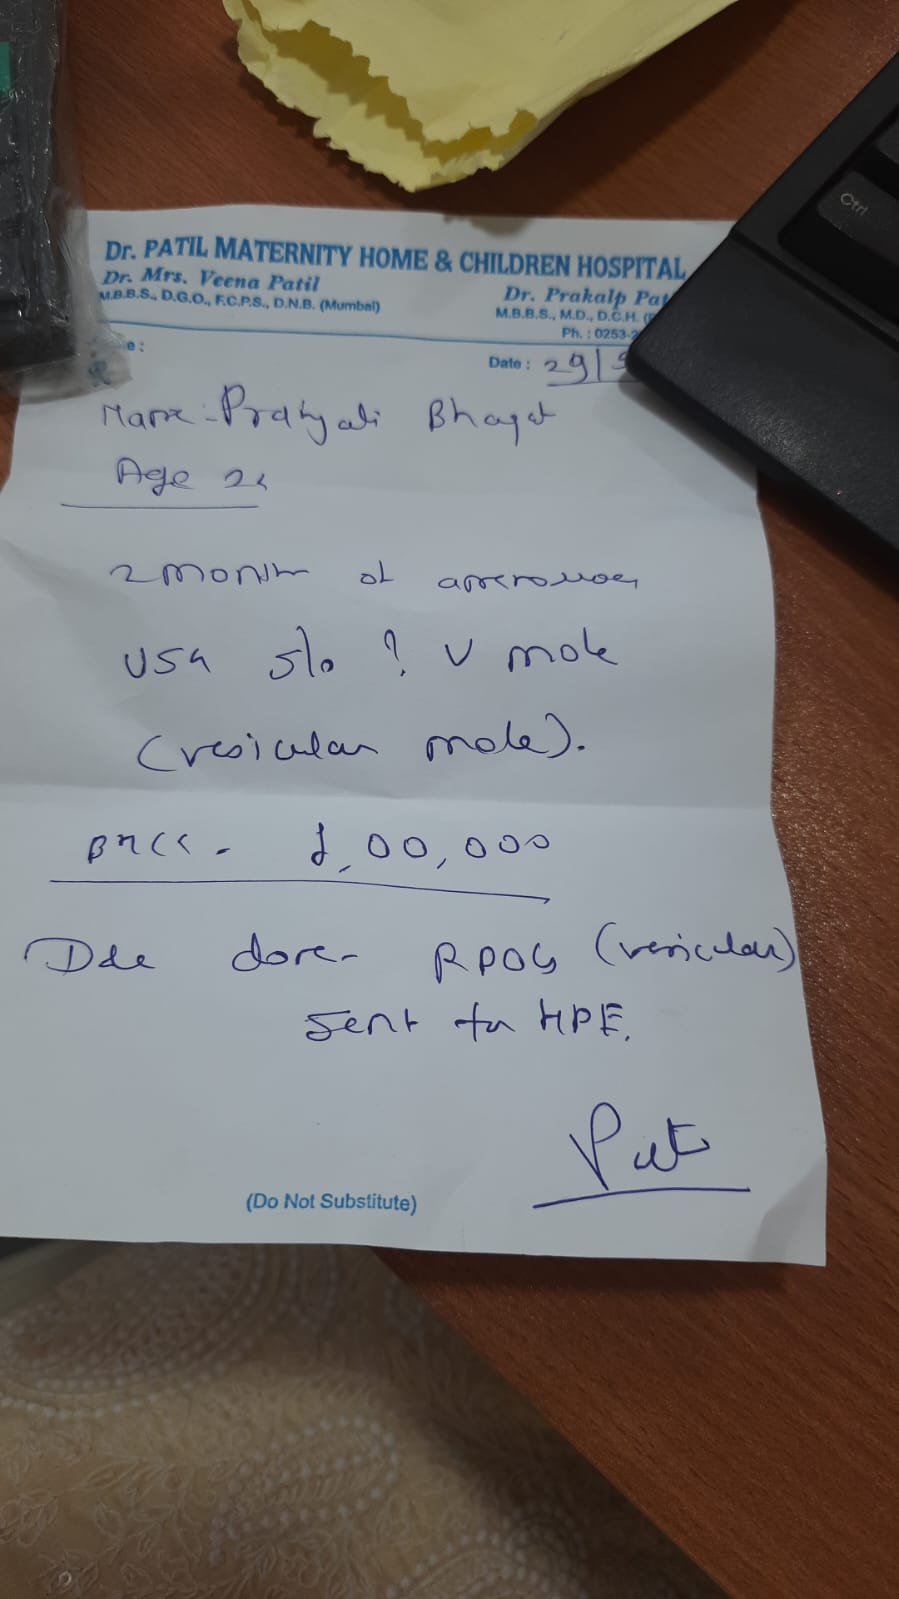 Dr. PATIL MATERNITY HOME & CHILDREN HOSPITAL
Dr. Mrs. Veena Patil
M.B.B.S., D.G.O., F.C.P.S., D.N.B. (Mumbai)
Dr. Prakalp Pat
M.B.B.S., M.D., D.C.H.
Ph. : 0253-2
Date : 29/
Name - Bhagat
Age
2 month of
USG s/o ? V mole
(vesicular mole).
1,00,000
D&e done - RPOC (vesicular)
sent for HPE.
(Do Not Substitute)
Ctrl